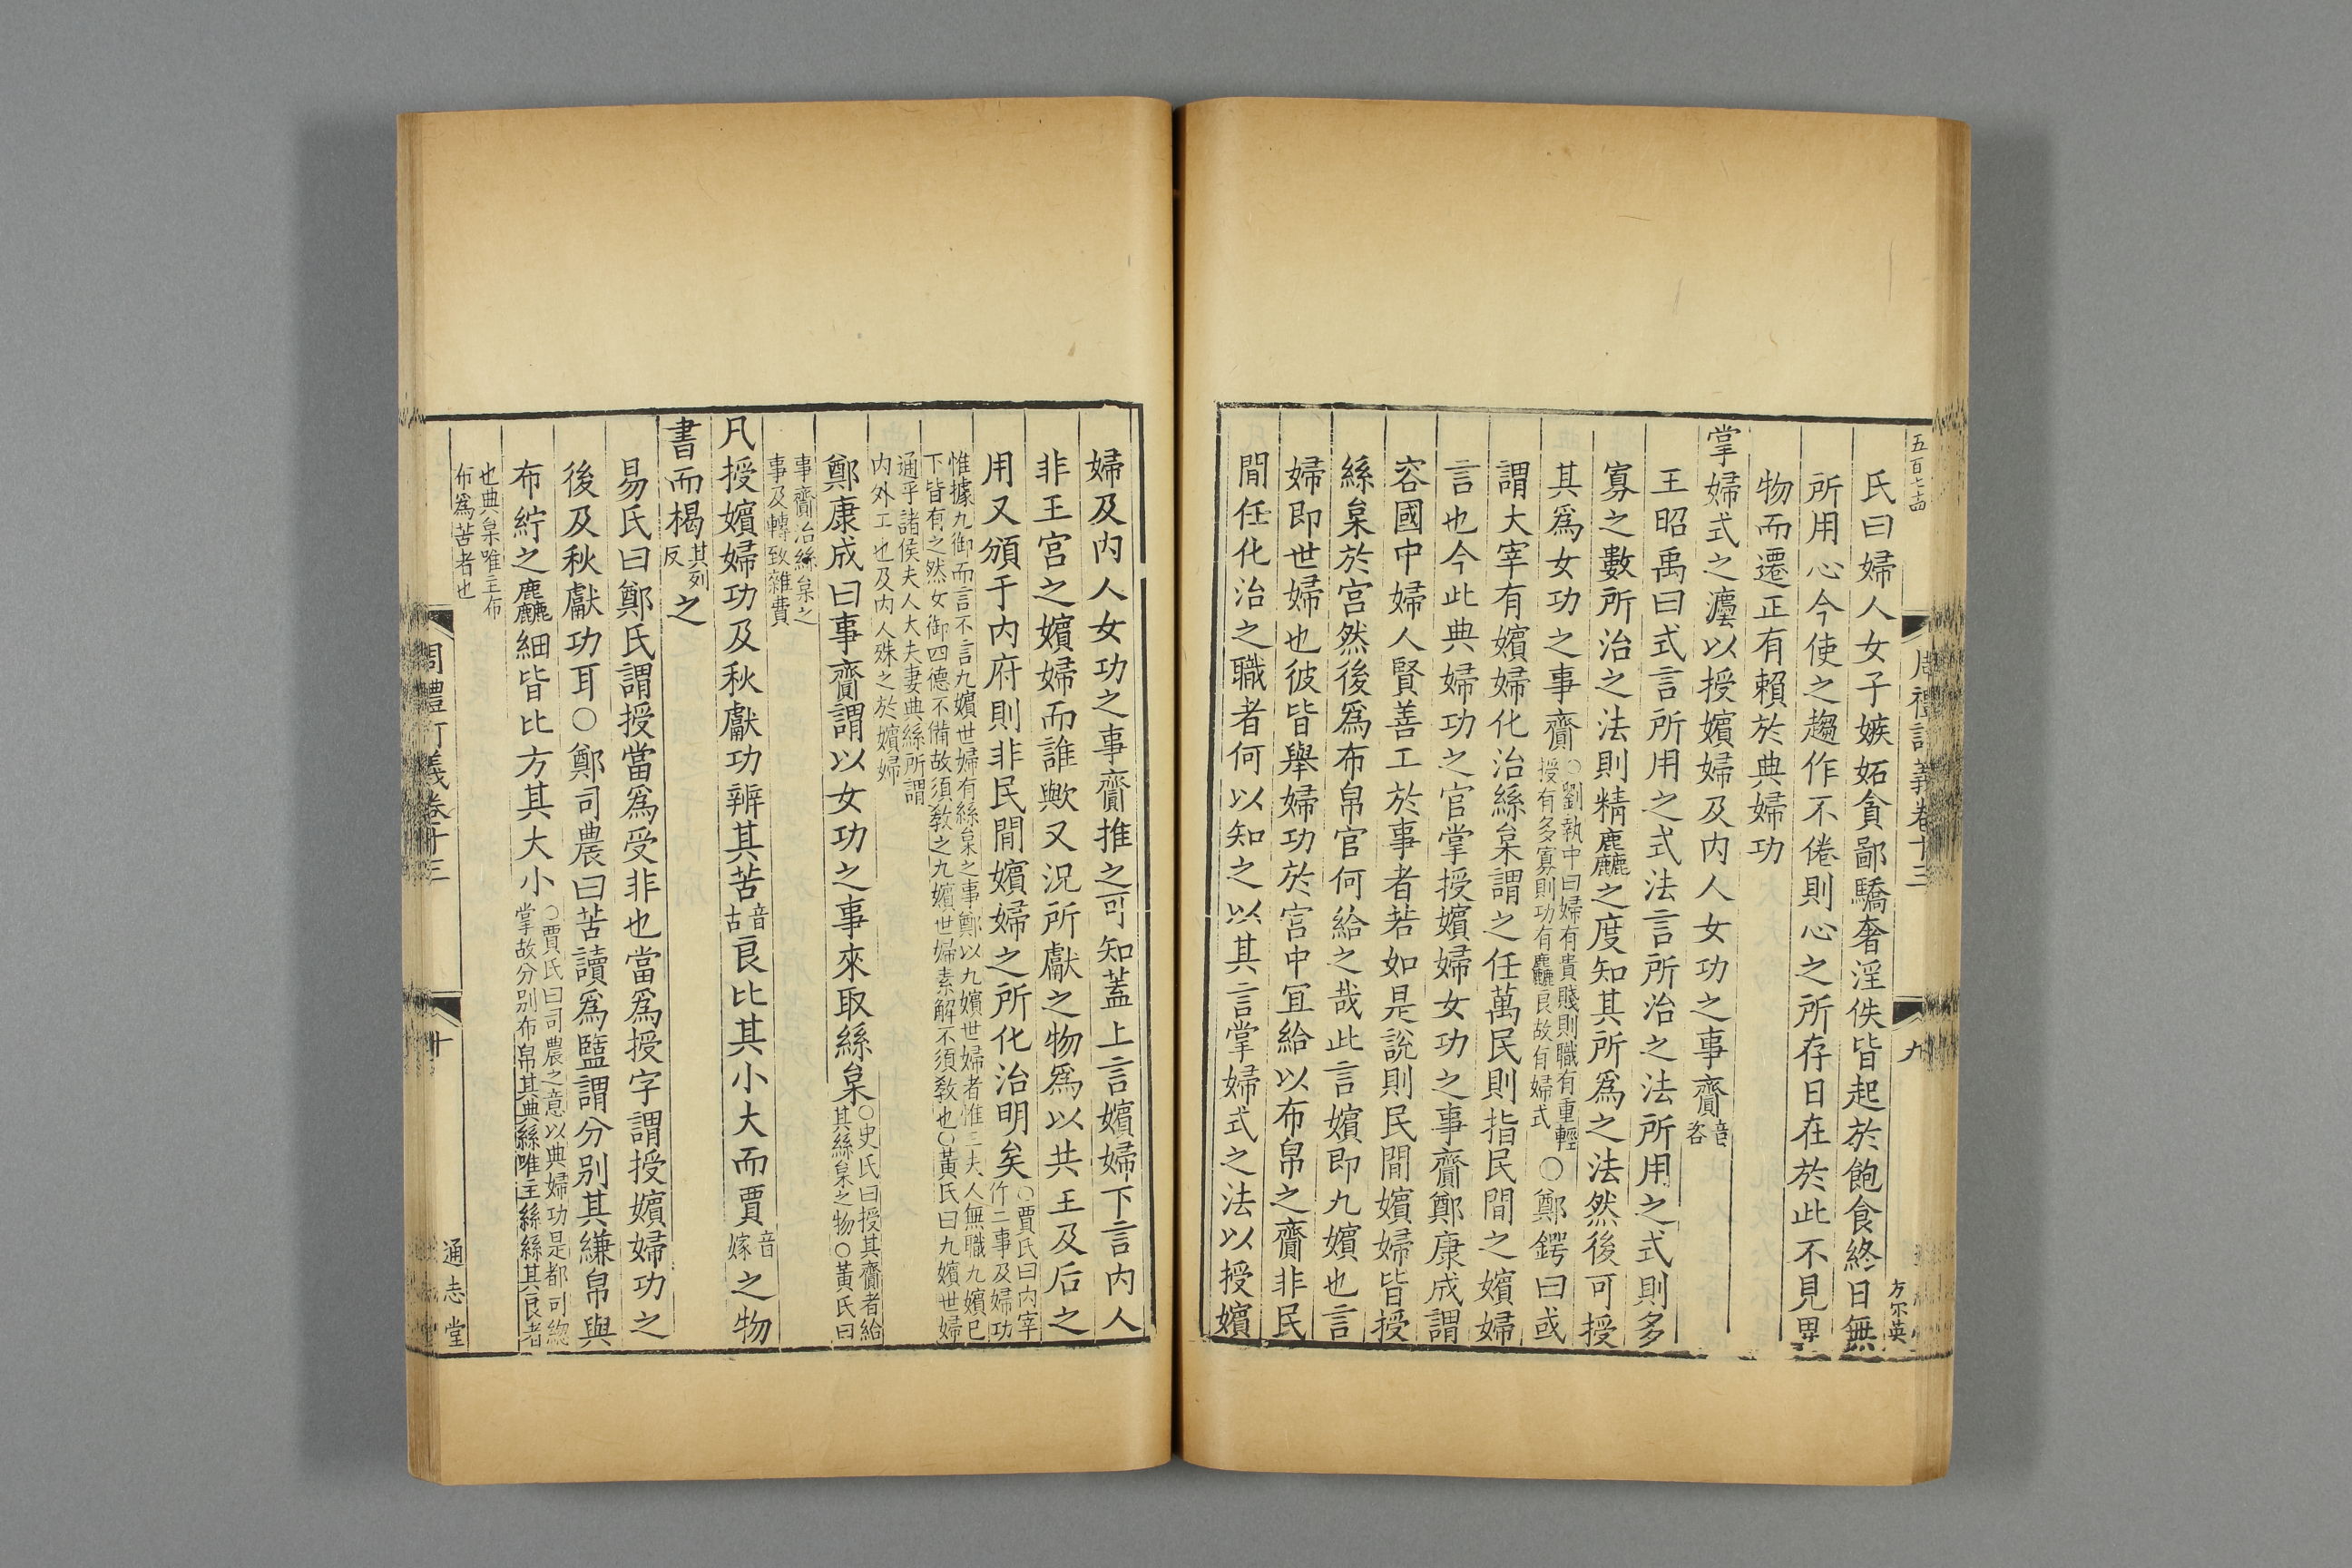 五百七十四
周禮訂義卷十三
九
方尔英
氏曰婦人女子嫉妬貪鄙驕奢淫佚皆起於飽食終日無
所用心今使之趨作不倦則心之所存日在於此不見異
物而遷正有賴於典婦功
掌婦式之灋以授嬪婦及内人女功之事齎音咨
王昭禹曰式言所用之式法言所治之法所用之式則多
寡之數所治之法則精麤之度知其所爲之法然後可授
其爲女功之事齎○劉執中曰婦有貴賤則職有重輕授有多寡則功有麤良故有婦式○鄭鍔曰或
謂大宰有嬪婦化治絲枲謂之任萬民則指民間之嬪婦
言也今此典婦功之官掌授嬪婦女功之事齎鄭康成謂
容國中婦人賢善工於事者若如是說則民間嬪婦皆授
絲枲於宫然後爲布帛官何給之哉此言嬪即九嬪也言
婦即世婦也彼皆舉婦功於宫中宜給以布帛之齎非民
間任化治之職者何以知之以其言掌婦式之法以授嬪
婦及内人女功之事齎推之可知蓋上言嬪婦下言内人
非王宫之嬪婦而誰歟又況所獻之物爲以共王及后之
用又頒于内府則非民間嬪婦之所化治明矣○賈氏曰内宰作二事及婦功
惟據九御而言不言九嬪世婦有絲枲之事鄭以九嬪世婦者惟三夫人無職九嬪已
下皆有之然女御四德不備故須敎之九嬪世婦素解不須敎也○黃氏曰九嬪世婦
通乎諸侯夫人大夫妻典絲所謂
内外工也及内人殊之於嬪婦
鄭康成曰事齎謂以女功之事來取絲枲○史氏曰授其齎者給其絲枲之物○黃氏曰
事齎治絲枲之
事及轉致雜費
凡授嬪婦功及秋獻功辨其苦音古良比其小大而賈音嫁之物
書而楬其列反之
易氏曰鄭氏謂授當爲受非也當爲授字謂授嬪婦功之
後及秋獻功耳○鄭司農曰苦讀爲盬謂分别其縑帛與
布紵之麤細皆比方其大小○賈氏曰司農之意以典婦功是都司總掌故分别布帛其典絲唯主絲絲其良者
也典枲唯主布
布爲苦者也
周禮訂義卷十三
十
通志堂